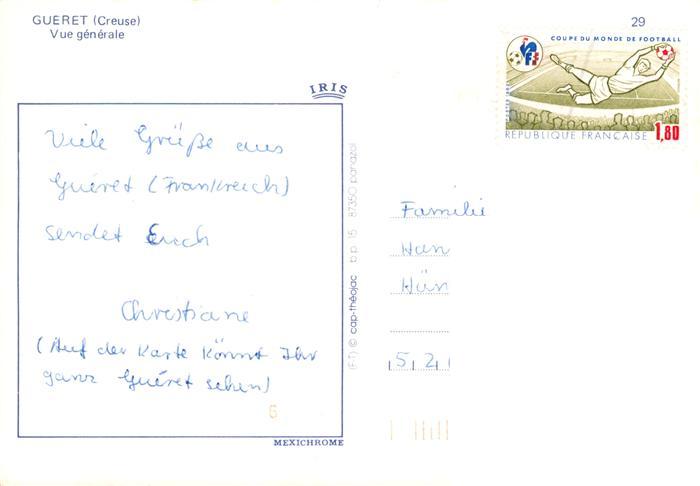 GUERET (Creuse)
Vue générale
29
COUPE DU MONDE DE FOOTBALL
REPUBLIQUE FRANÇAISE 1,80
IRIS
Viele Grüße aus
Guéret (Frankreich)
sendet Euch
Christiane
(Auf der Karte könnt Ihr
ganz Guéret sehen)
6
MEXICHROME
(F-T) © cap-théojac b.p. 15 87350 panazol
Familie
Han
Hün
5 2